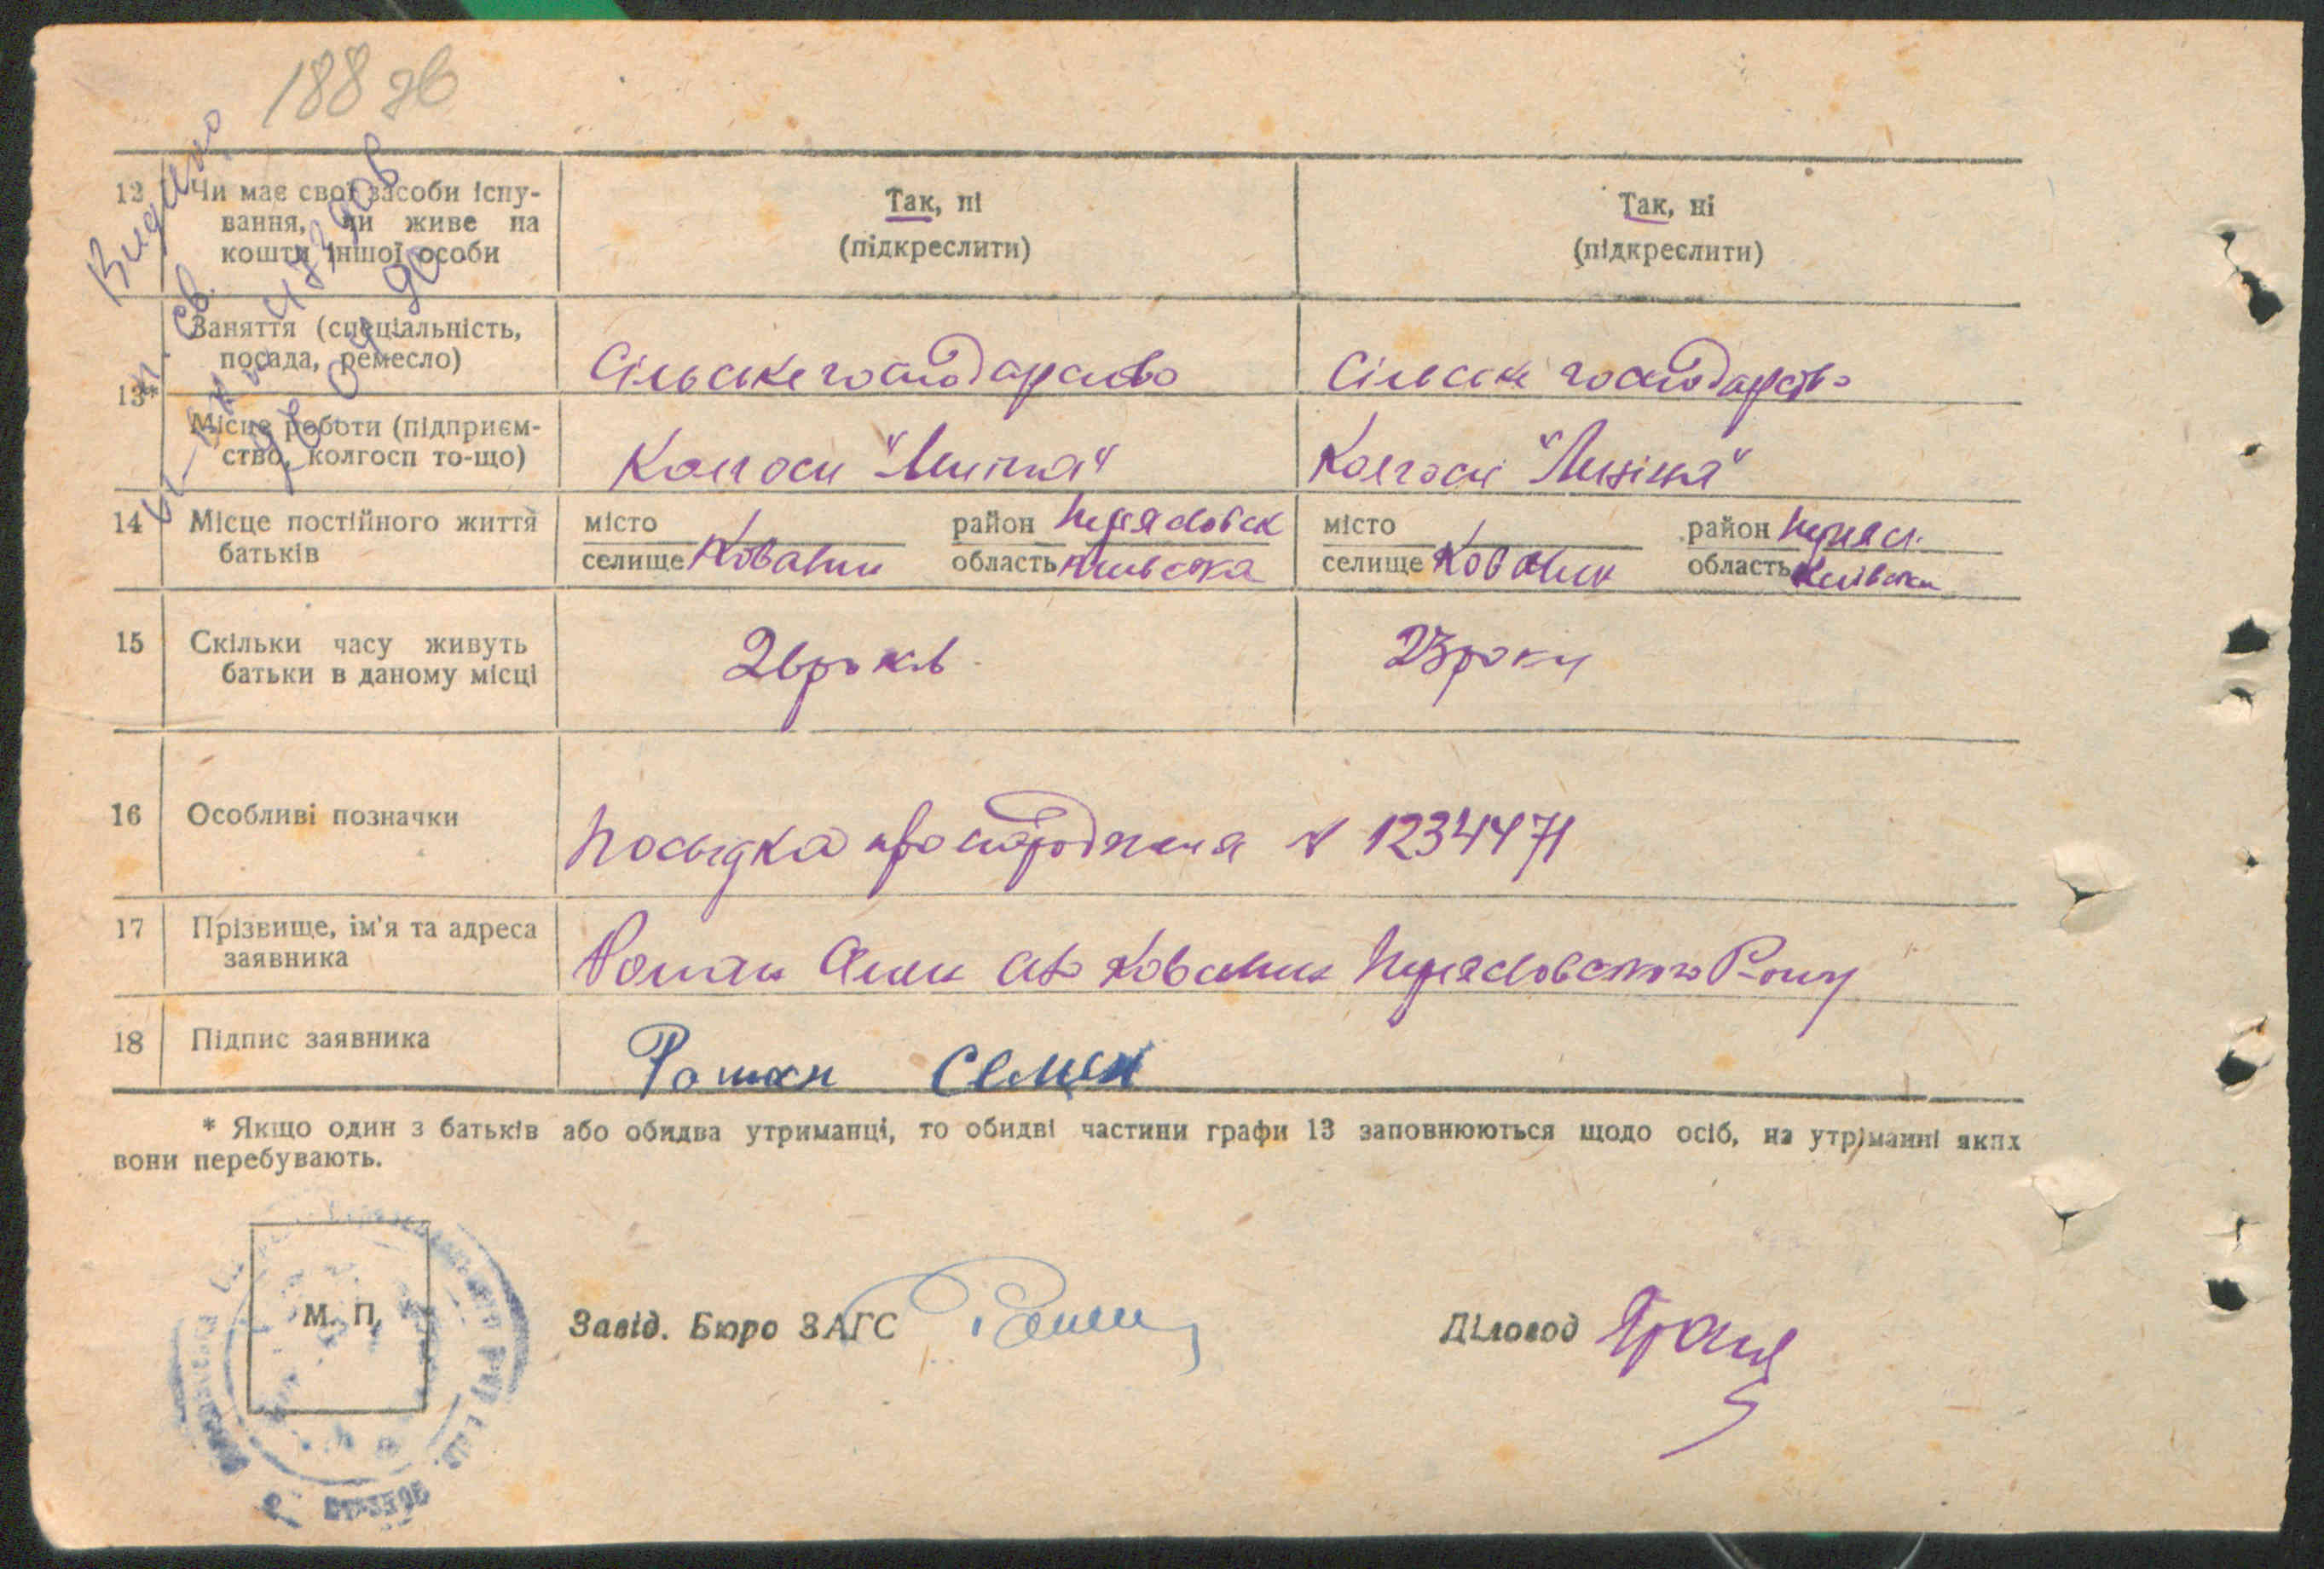 188 зв
Видано
12 Чи має свої засоби існу-
вання, чи живе на
кошти іншої особи
Так, ні
(підкреслити)
Так, ні
(підкреслити)
13*
Заняття (спеціальність,
посада, ремесло)
Сільське господарство
Сільське господарство
Місце роботи (підприєм-
ство, колгосп то-що)
Колгосп
Колгосп
14 Місце постійного життя
батьків
місто район
селище Ковалин область Київська
місто район Переясл.
селище Ковалин область Київська
15 Скільки часу живуть
батьки в даному місці
26 років
23 роки
16 Особливі позначки
Посвідка про народження № 1234471
17 Прізвище, ім'я та адреса
заявника
Роман Семен с Ковалин Переясловського Р-ону
18 Підпис заявника
Роман Семен
* Якщо один з батьків або обидва утриманці, то обидві частини графи 13 заповнюються щодо осіб, на утриманні яких
вони перебувають.
М. П.
Завід. Бюро ЗАГС
Діловод